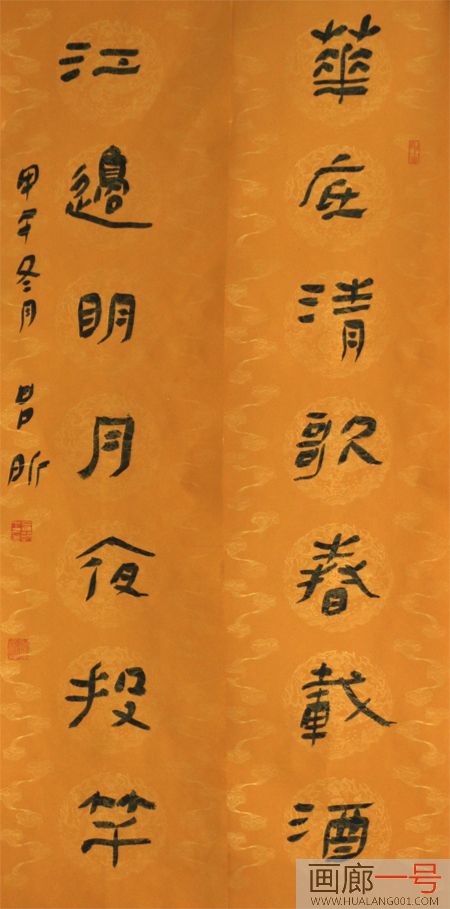 華底清歌春載酒
江邊明月夜投竿
甲午冬月 吕昕
画廊一号
WWW.HUALANG001.COM